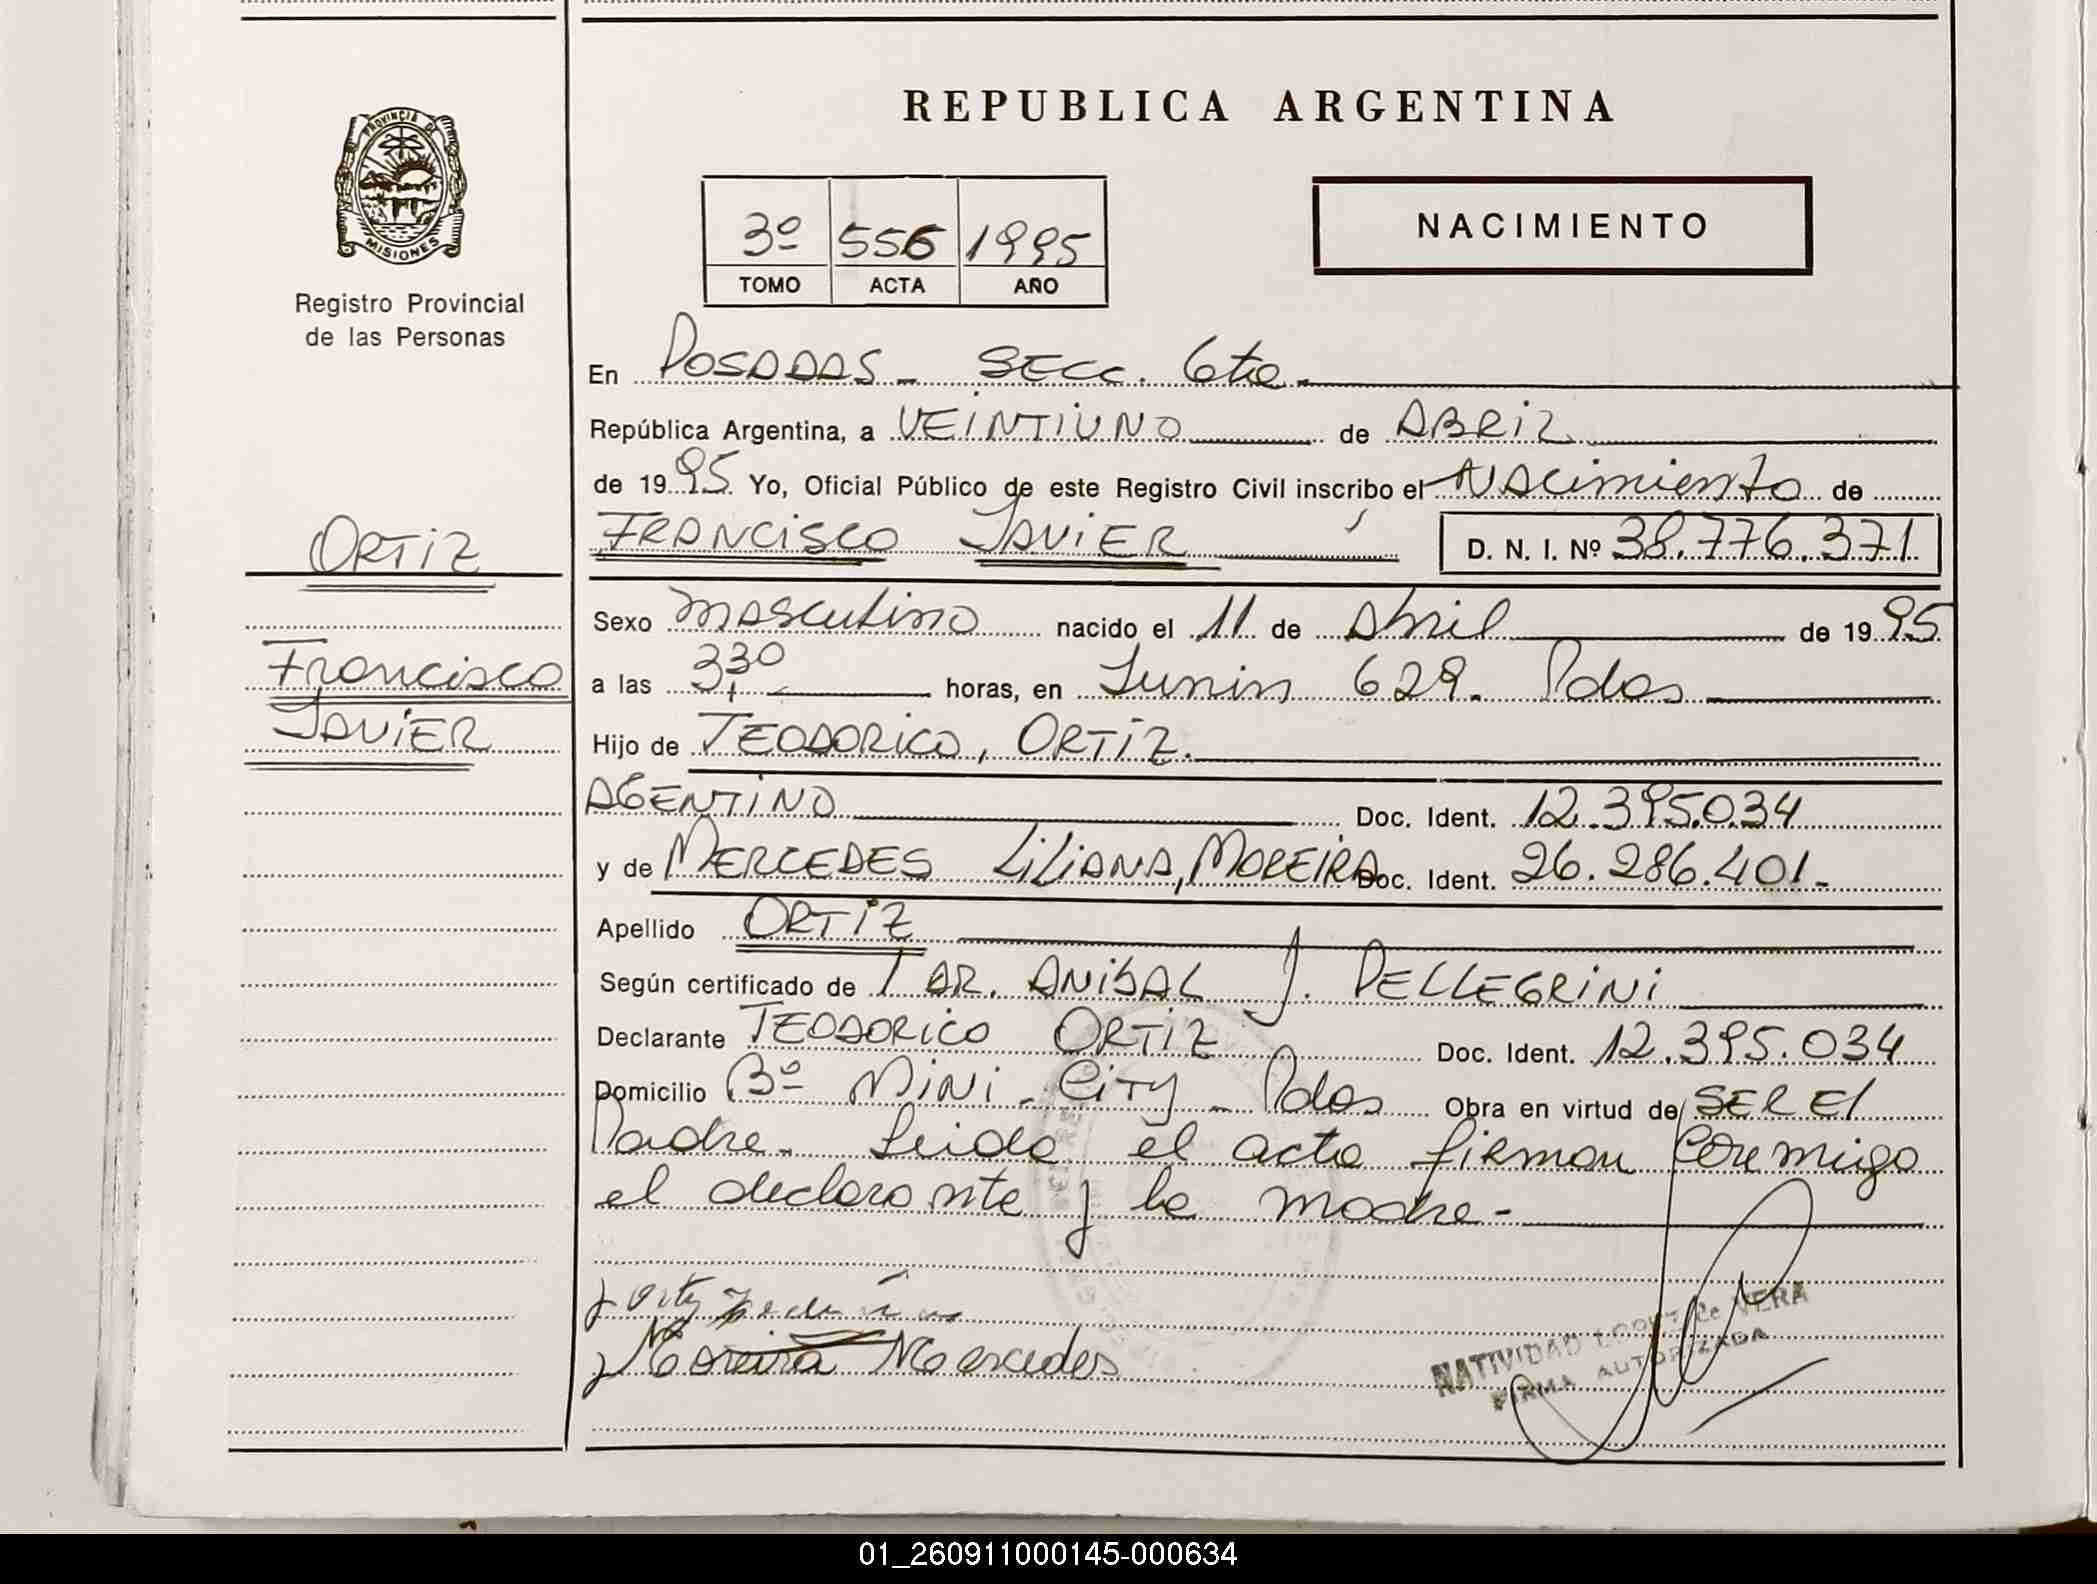 REPUBLICA ARGENTINA
PROVINCIA DE
MISIONES
Registro Provincial
de las Personas
3º 556 1995
TOMO ACTA AÑO
NACIMIENTO
En POSADAS - SECC. 6ta -
República Argentina, a VEINTIUNO de ABRIL
de 1995 Yo, Oficial Público de este Registro Civil inscribo el Nacimiento de
ORTIZ
FRANCISCO JAVIER D. N. I. Nº 38.776.371
Sexo masculino nacido el 11 de Abril de 1995
Francisco
a las 3,30 horas, en Junin 629. Pdas
JAVIER
Hijo de TEODORICO, ORTIZ.
AGENTINO Doc. Ident. 12.395.034
y de MERCEDES LILIANA, MOREIRA Doc. Ident. 26.286.401.-
Apellido ORTIZ
Según certificado de DR. ANIBAL J. PELLEGRINI
Declarante TEODORICO ORTIZ Doc. Ident. 12.395.034
Domicilio Bº MINI - CITY - Pdas Obra en virtud de SER El
Padre. Leida el acta firman Conmigo
el declarante y la madre.-
Moreira Mercedes
NATIVIDAD LOPEZ de VERA
FIRMA AUTORIZADA
01_260911000145-000634